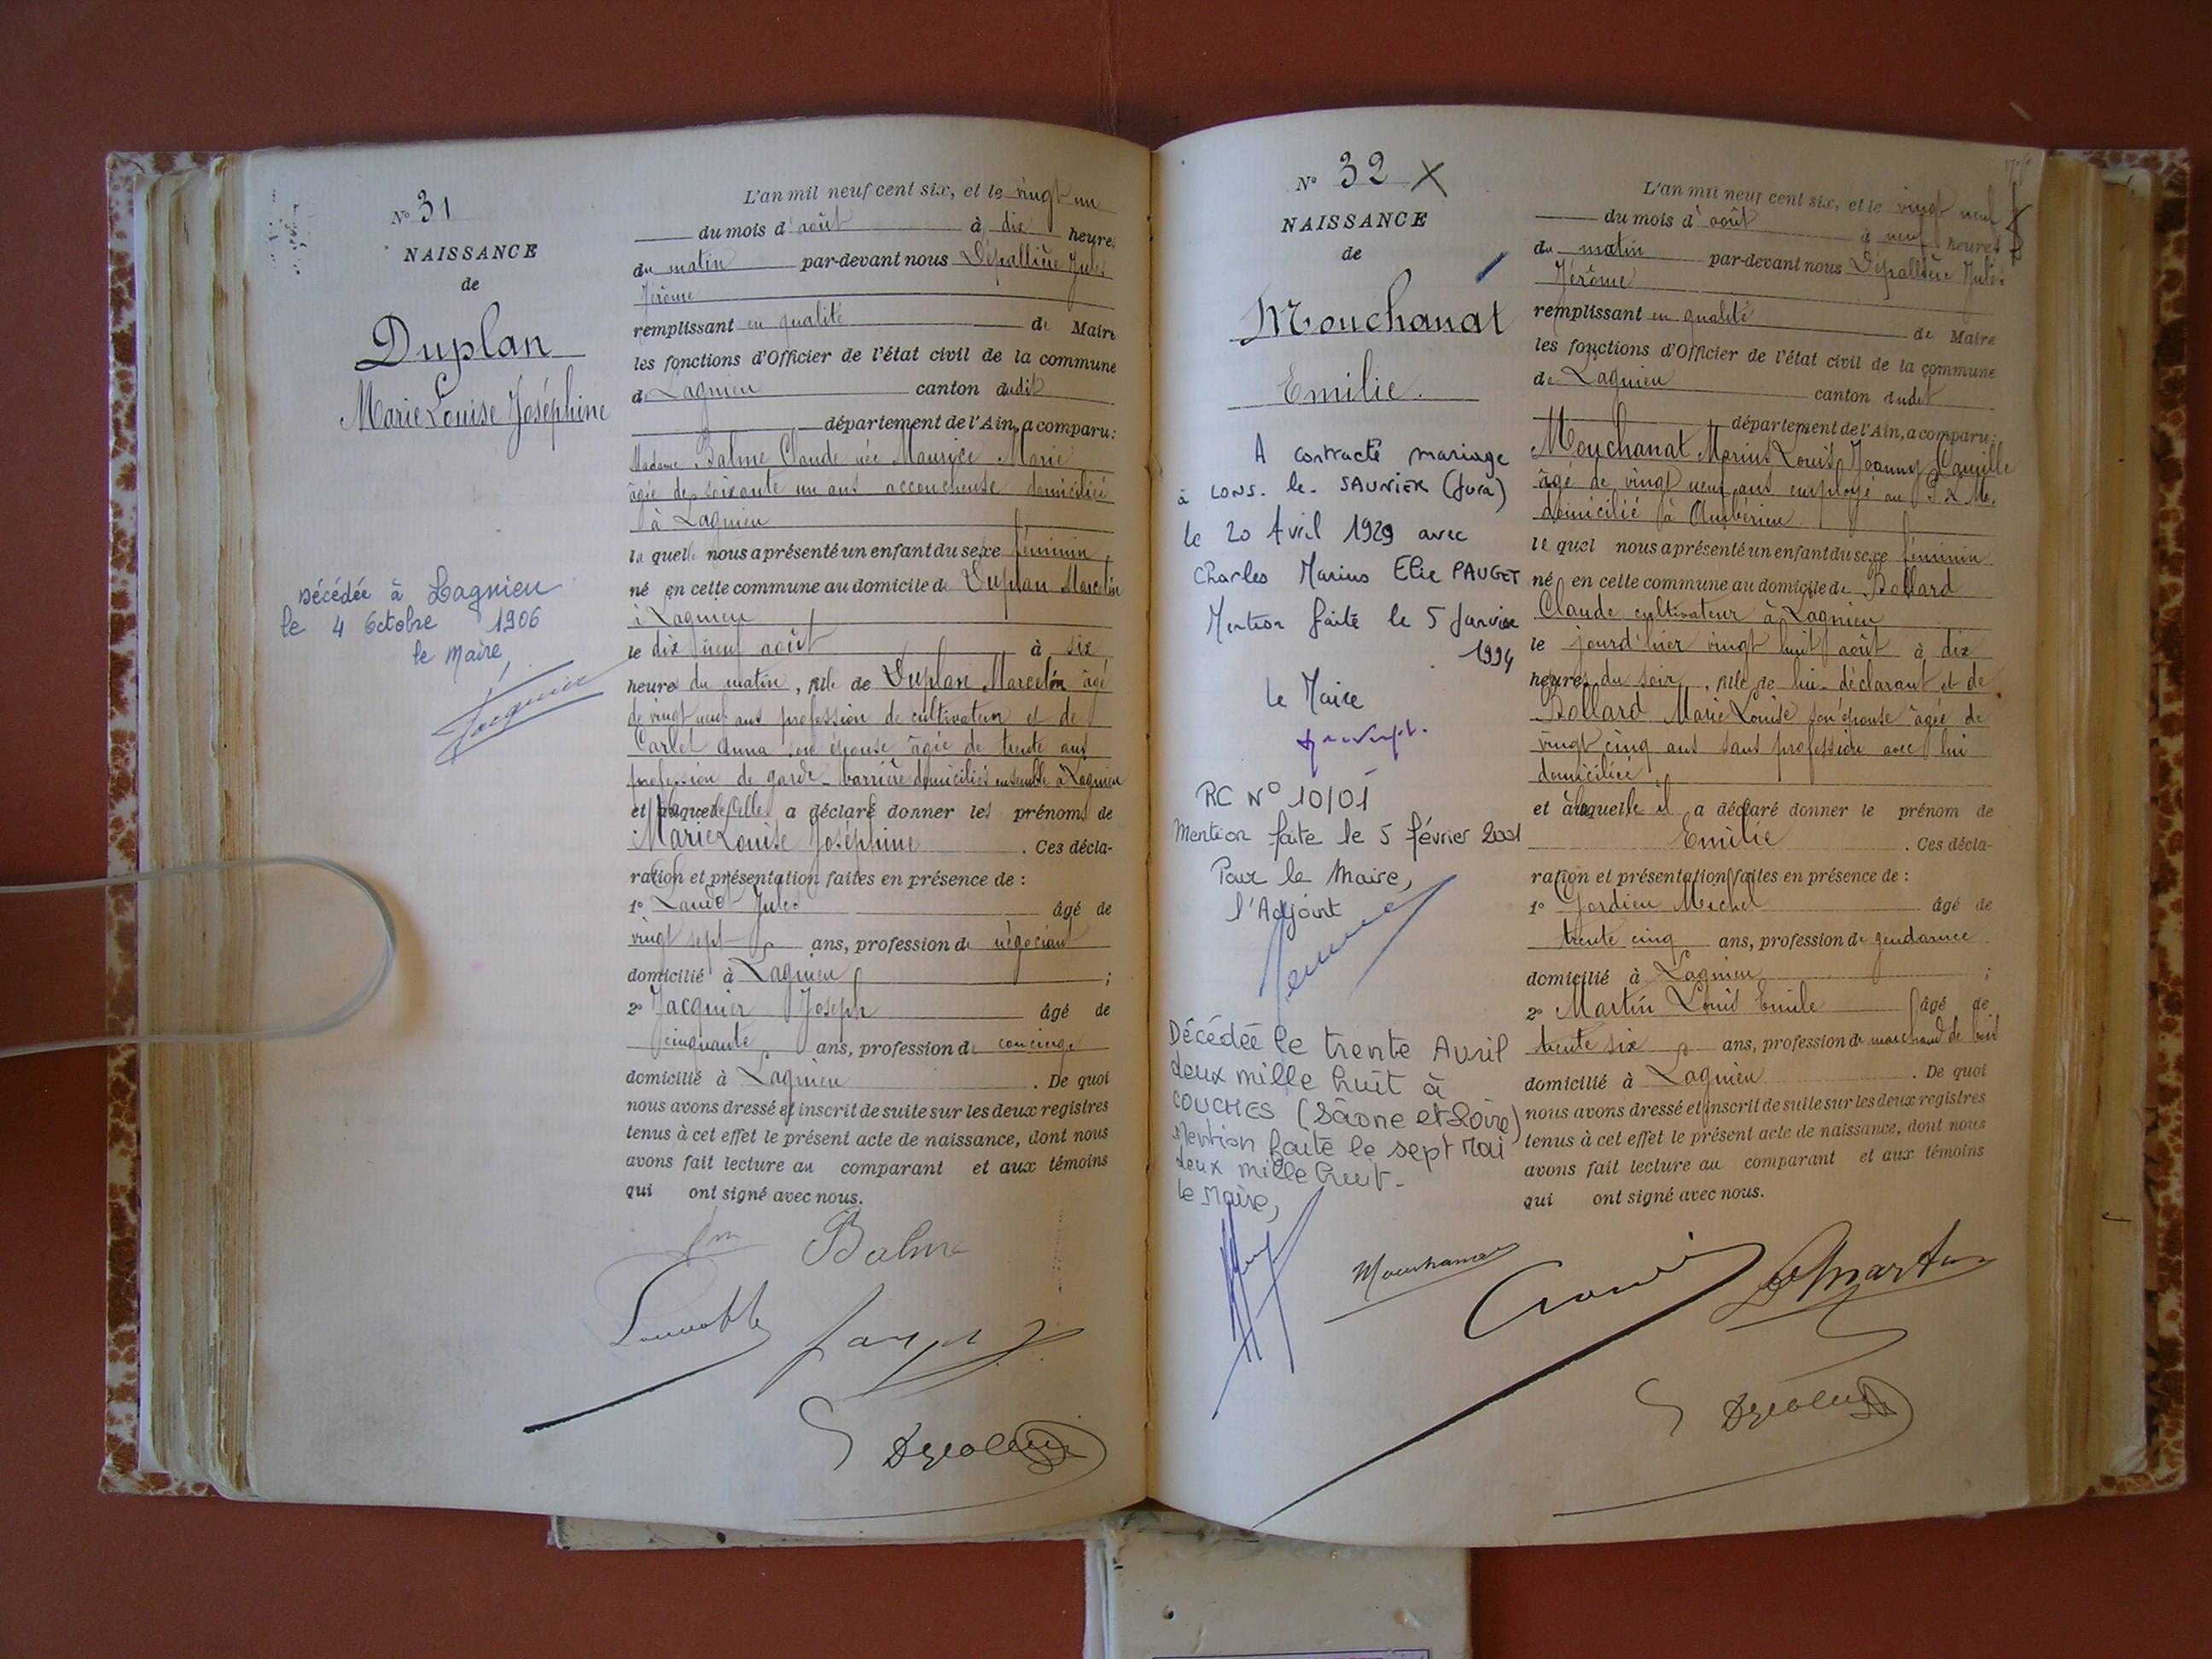 N° 31
NAISSANCE
de
Duplan
Marie Louise Joséphine
Décédée à Lagnieu
le 4 Octobre 1906
le Maire,
L'an mil neuf cent six, et le vingt un
du mois d'août à dix heures
du matin par-devant nous Dépallière Jules
Jérôme
remplissant en qualité de Maire
les fonctions d'Officier de l'état civil de la commune
de Lagnieu canton dudit
département de l'Ain, a comparu:
Madame Balme Claude née Maurice Marie
âgée de soixante un ans accoucheuse domiciliée
à Lagnieu
la quelle nous a présenté un enfant du sexe féminin
né en cette commune au domicile de Duplan Marcelin
à Lagnieu
le dix neuf août à six
heures du matin, fille de Duplan Marcelin âgé
de vingt neuf ans profession de cultivateur et de
Carlet Anna son épouse âgée de trente ans
profession de garde-barrière domiciliés ensemble à Lagnieu
et à laquelle elle a déclaré donner les prénoms de
Marie Louise Joséphine. Ces décla-
ration et présentation faites en présence de :
1° Jules âgé de
vingt sept ans, profession de négociant
domicilié à Lagnieu ;
2° Jacquier Joseph âgé de
cinquante ans, profession de concierge
domicilié à Lagnieu. De quoi
nous avons dressé et inscrit de suite sur les deux registres
tenus à cet effet le présent acte de naissance, dont nous
avons fait lecture au comparant et aux témoins
qui ont signé avec nous.
Balme
N° 32 X
NAISSANCE
de
Mouchanat
Emilie.
A contracté mariage
à LONS-le-SAUNIER (Jura)
le 20 Avril 1929 avec
Charles Marius Elie PAUGET
Mention faite le 5 Janvier
1994
Le Maire
RC N° 10/01
Mention faite le 5 février 2001
Pour le Maire,
l'Adjoint
Décédée le trente Avril
deux mille huit à
COUCHES (Sâone et Loire)
Mention faite le sept Mai
deux mille huit-
le Maire,
L'an mil neuf cent six, et le vingt neuf
du mois d'août à neuf heures
du matin par-devant nous Dépallière Jules
Jérôme
remplissant en qualité de Maire
les fonctions d'Officier de l'état civil de la commune
de Lagnieu canton dudit
département de l'Ain, a comparu:
Mouchanat Marius Louis Joanny Camille
âgé de vingt neuf ans employé au P.L.M.
domicilié à Ambérieu
le quel nous a présenté un enfant du sexe féminin
né en cette commune au domicile de Bollard
Claude cultivateur à Lagnieu
le jourd'hier vingt huit août à dix
heures du soir, fille de lui déclarant et de
Bollard Marie Louise son épouse âgée de
vingt cinq ans sans profession avec lui
domiciliée
et à laquelle il a déclaré donner le prénom de
Emilie. Ces décla-
ration et présentation faites en présence de :
1° Gordieu Michel âgé de
trente cinq ans, profession de gendarme
domicilié à Lagnieu ;
2° Martin Louis Emile âgé de
trente six ans, profession de marchand de bois
domicilié à Lagnieu. De quoi
nous avons dressé et inscrit de suite sur les deux registres
tenus à cet effet le présent acte de naissance, dont nous
avons fait lecture au comparant et aux témoins
qui ont signé avec nous.
Mouchanat
Martin